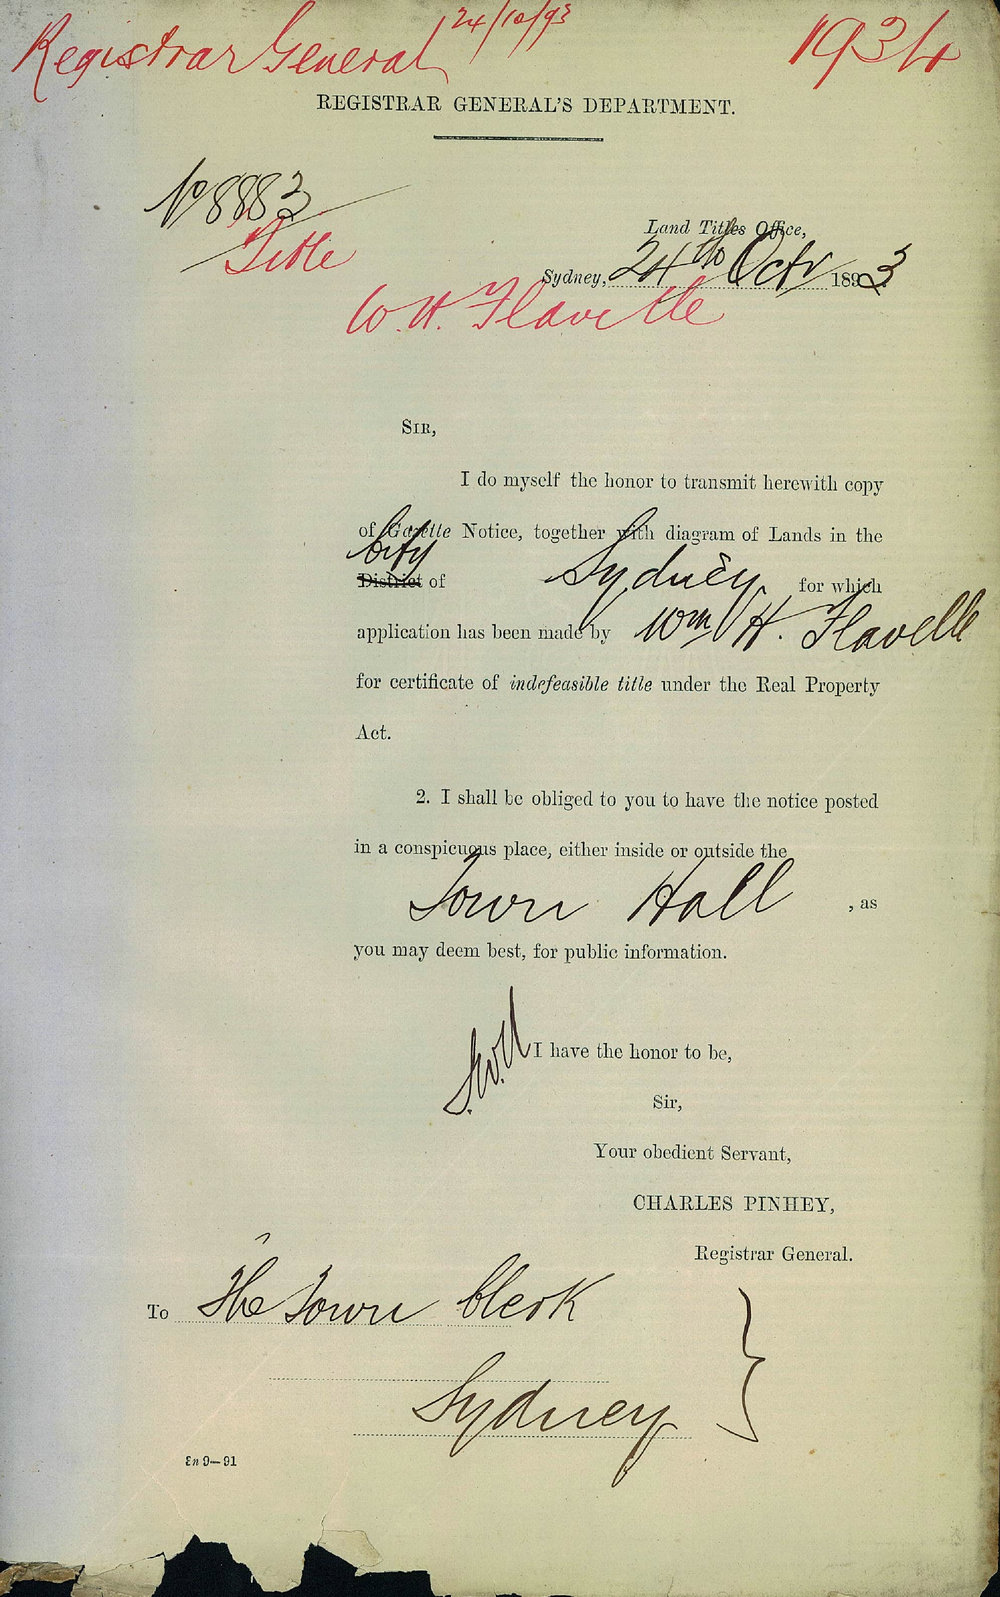 Registrar General 24/10/93 1934
REGISTRAR GENERAL'S DEPARTMENT.
No 8883
Title
Land Titles Office,
Sydney, 24th Octr 1893
W. H. Flavelle
SIR,
I do myself the honor to transmit herewith copy
of Gazette Notice, together with diagram of Lands in the
City
District of Sydney for which
application has been made by Wm H. Flavelle
for certificate of indefeasible title under the Real Property
Act.
2. I shall be obliged to you to have the notice posted
in a conspicuous place, either inside or outside the
Town Hall , as
you may deem best, for public information.
I have the honor to be,
Sir,
Your obedient Servant,
CHARLES PINHEY,
Registrar General.
To The Town Clerk
Sydney
9—91